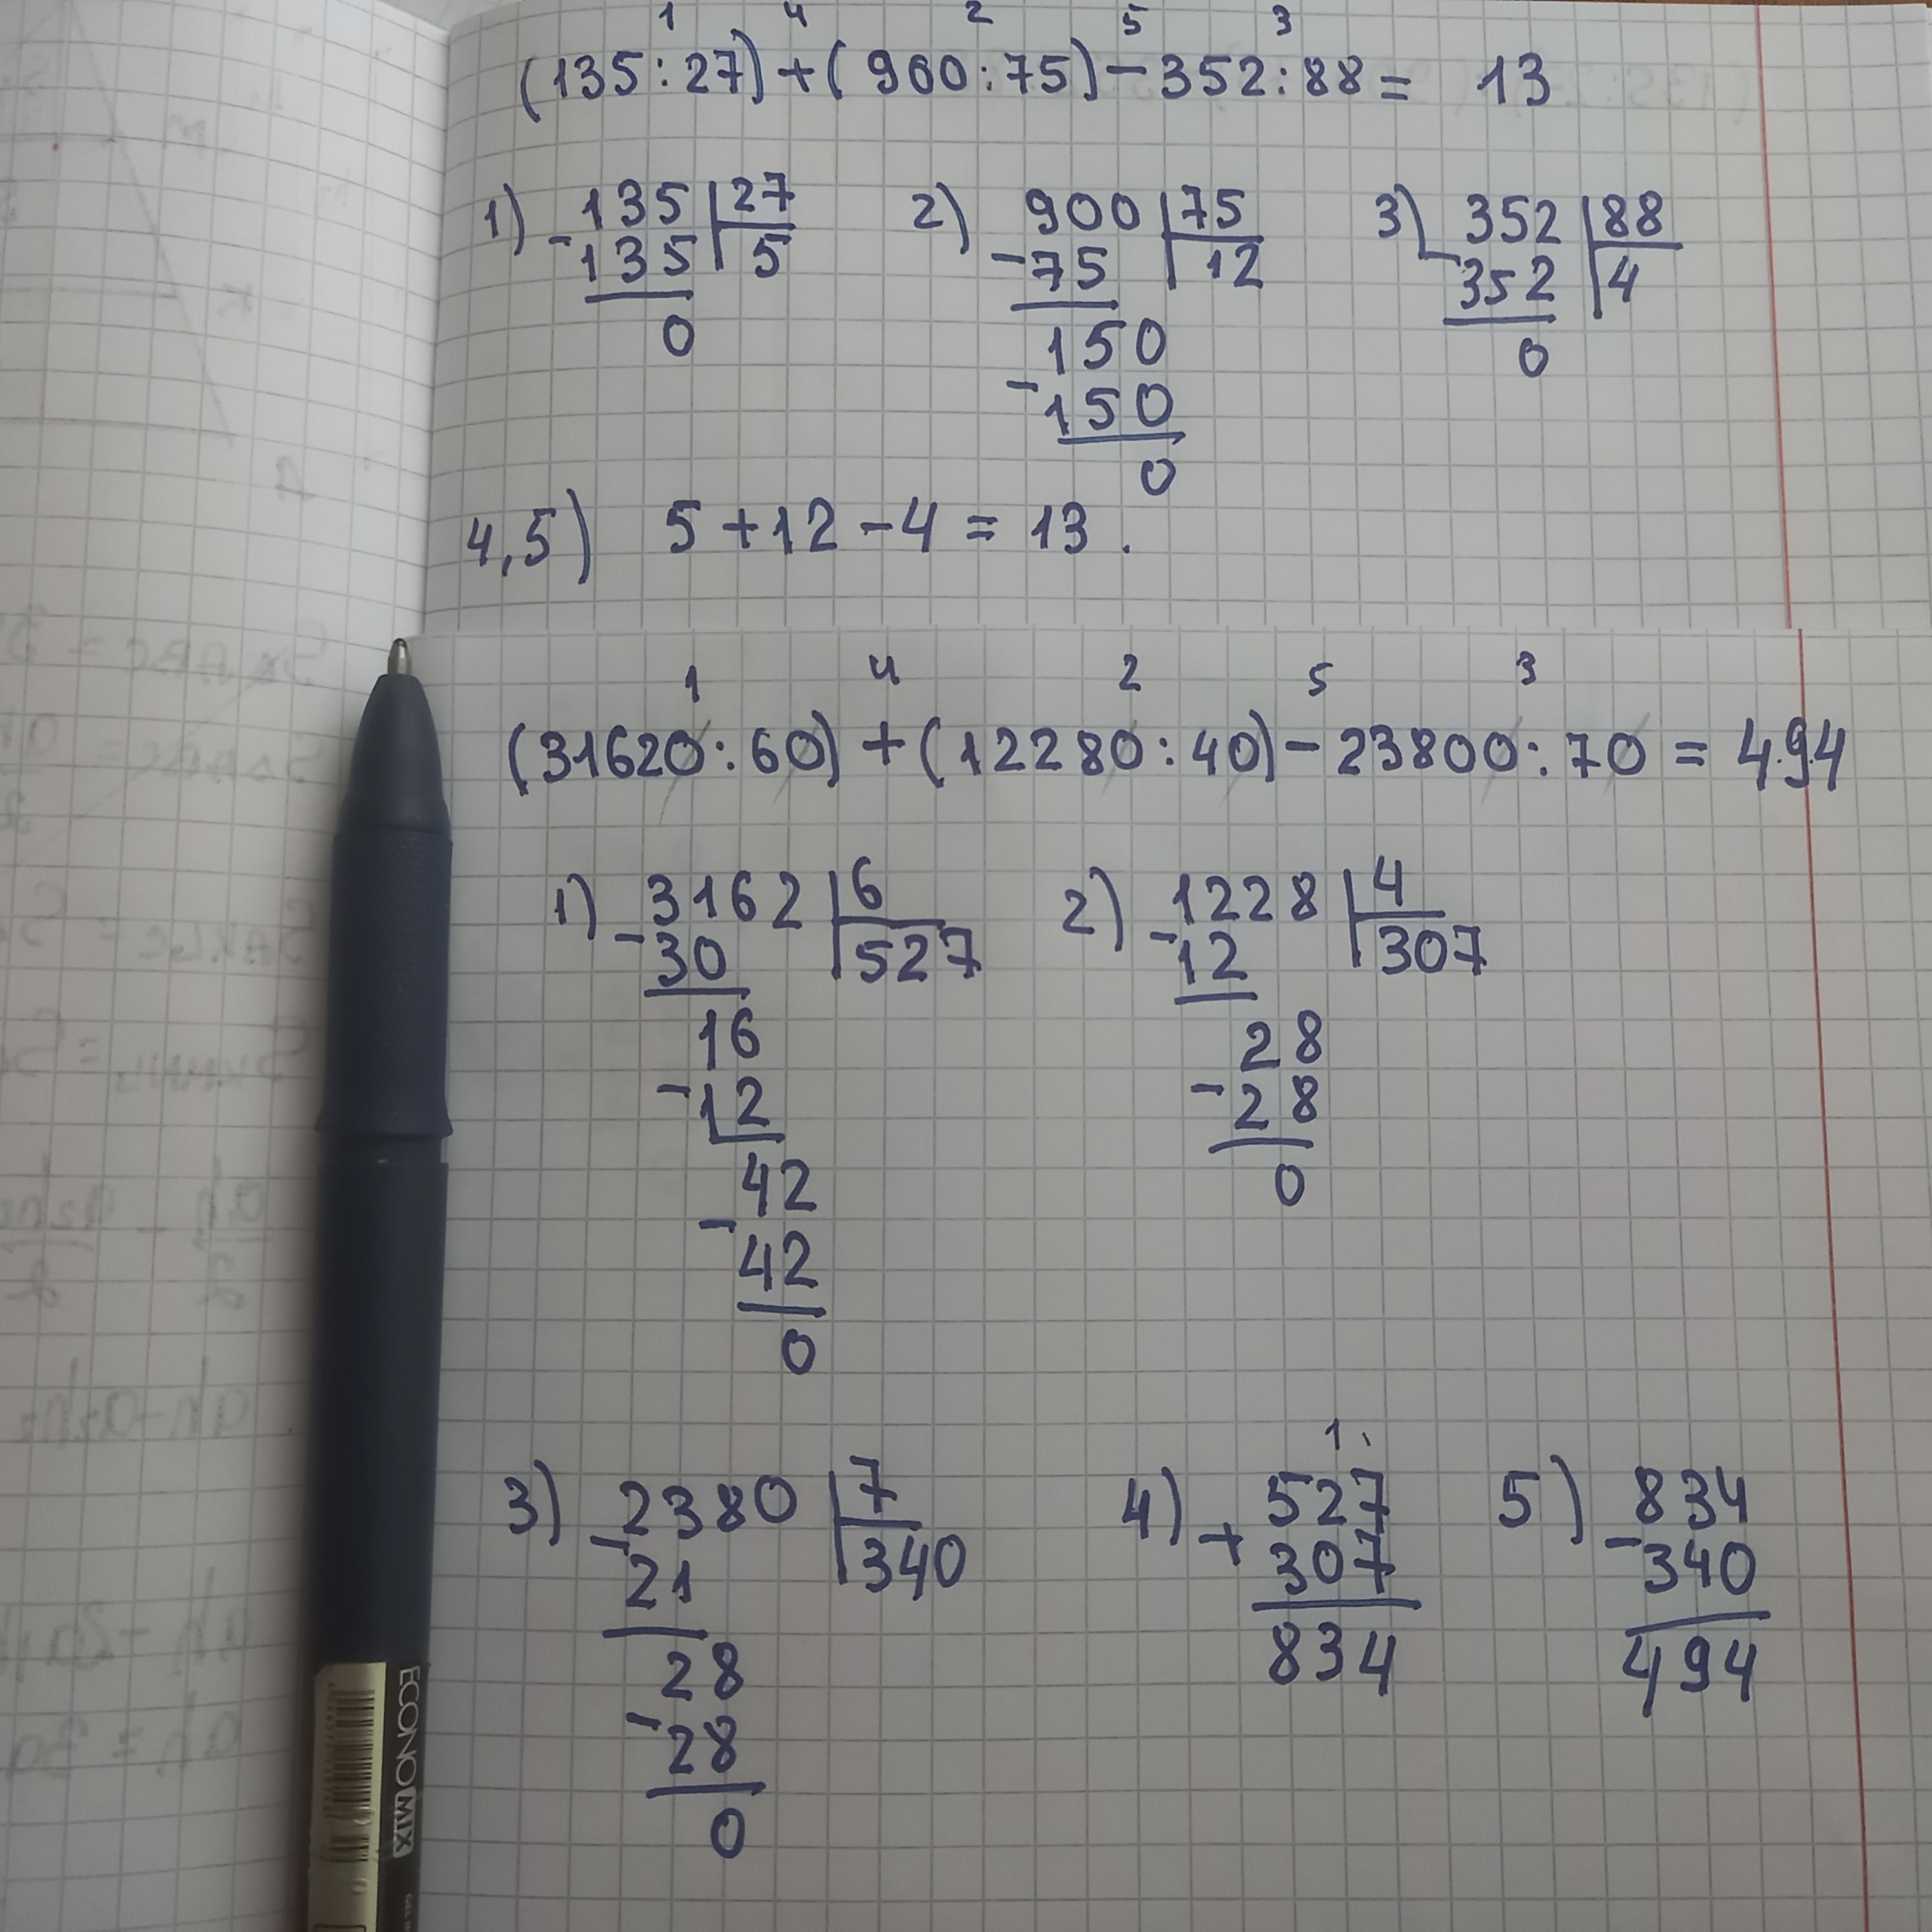 1 4 2 5 3
(135:27)+(900:75)-352:88= 13
1) 135 27 2) 900 75 3) 352 88
-135 5 -75 12 -352 4
0 150 0
-150
0
4,5) 5+12-4=13.
1 4 2 5 3
(31620:60)+(12280:40)-23800:70=494
1) 3162 6 2) 1228 4
-30 527 -12 307
16 28
-12 -28
42 0
-42
0
1
3) 2380 7 4) 527 5) 834
-21 340 +307 -340
28 834 494
-28
0
ECONOMIX